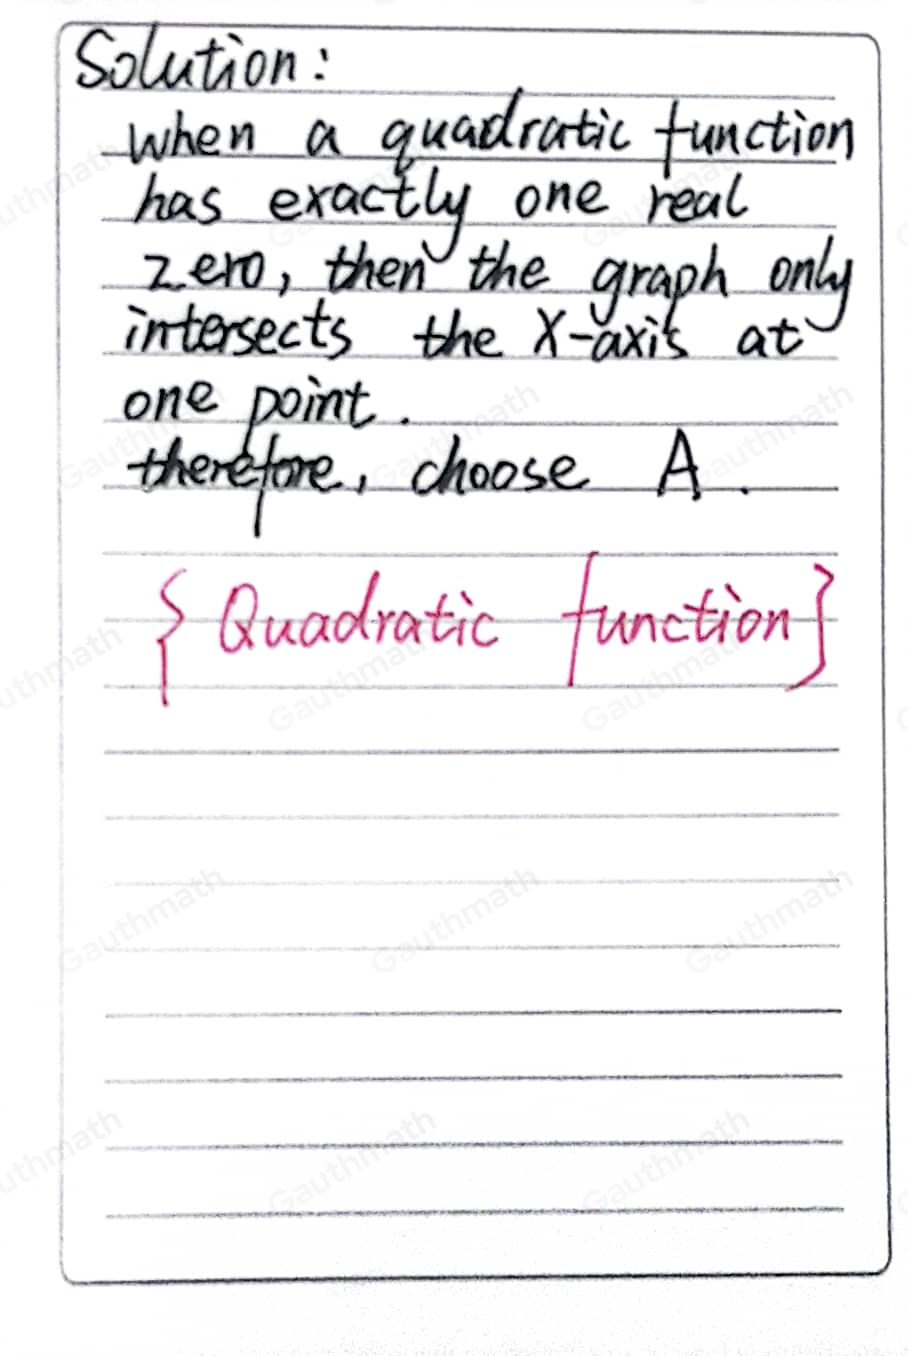 Solution:
when a quadratic function
has exactly one real
zero, then the graph only
intersects the X-axis at
one point.
therefore, choose A.
{Quadratic function}